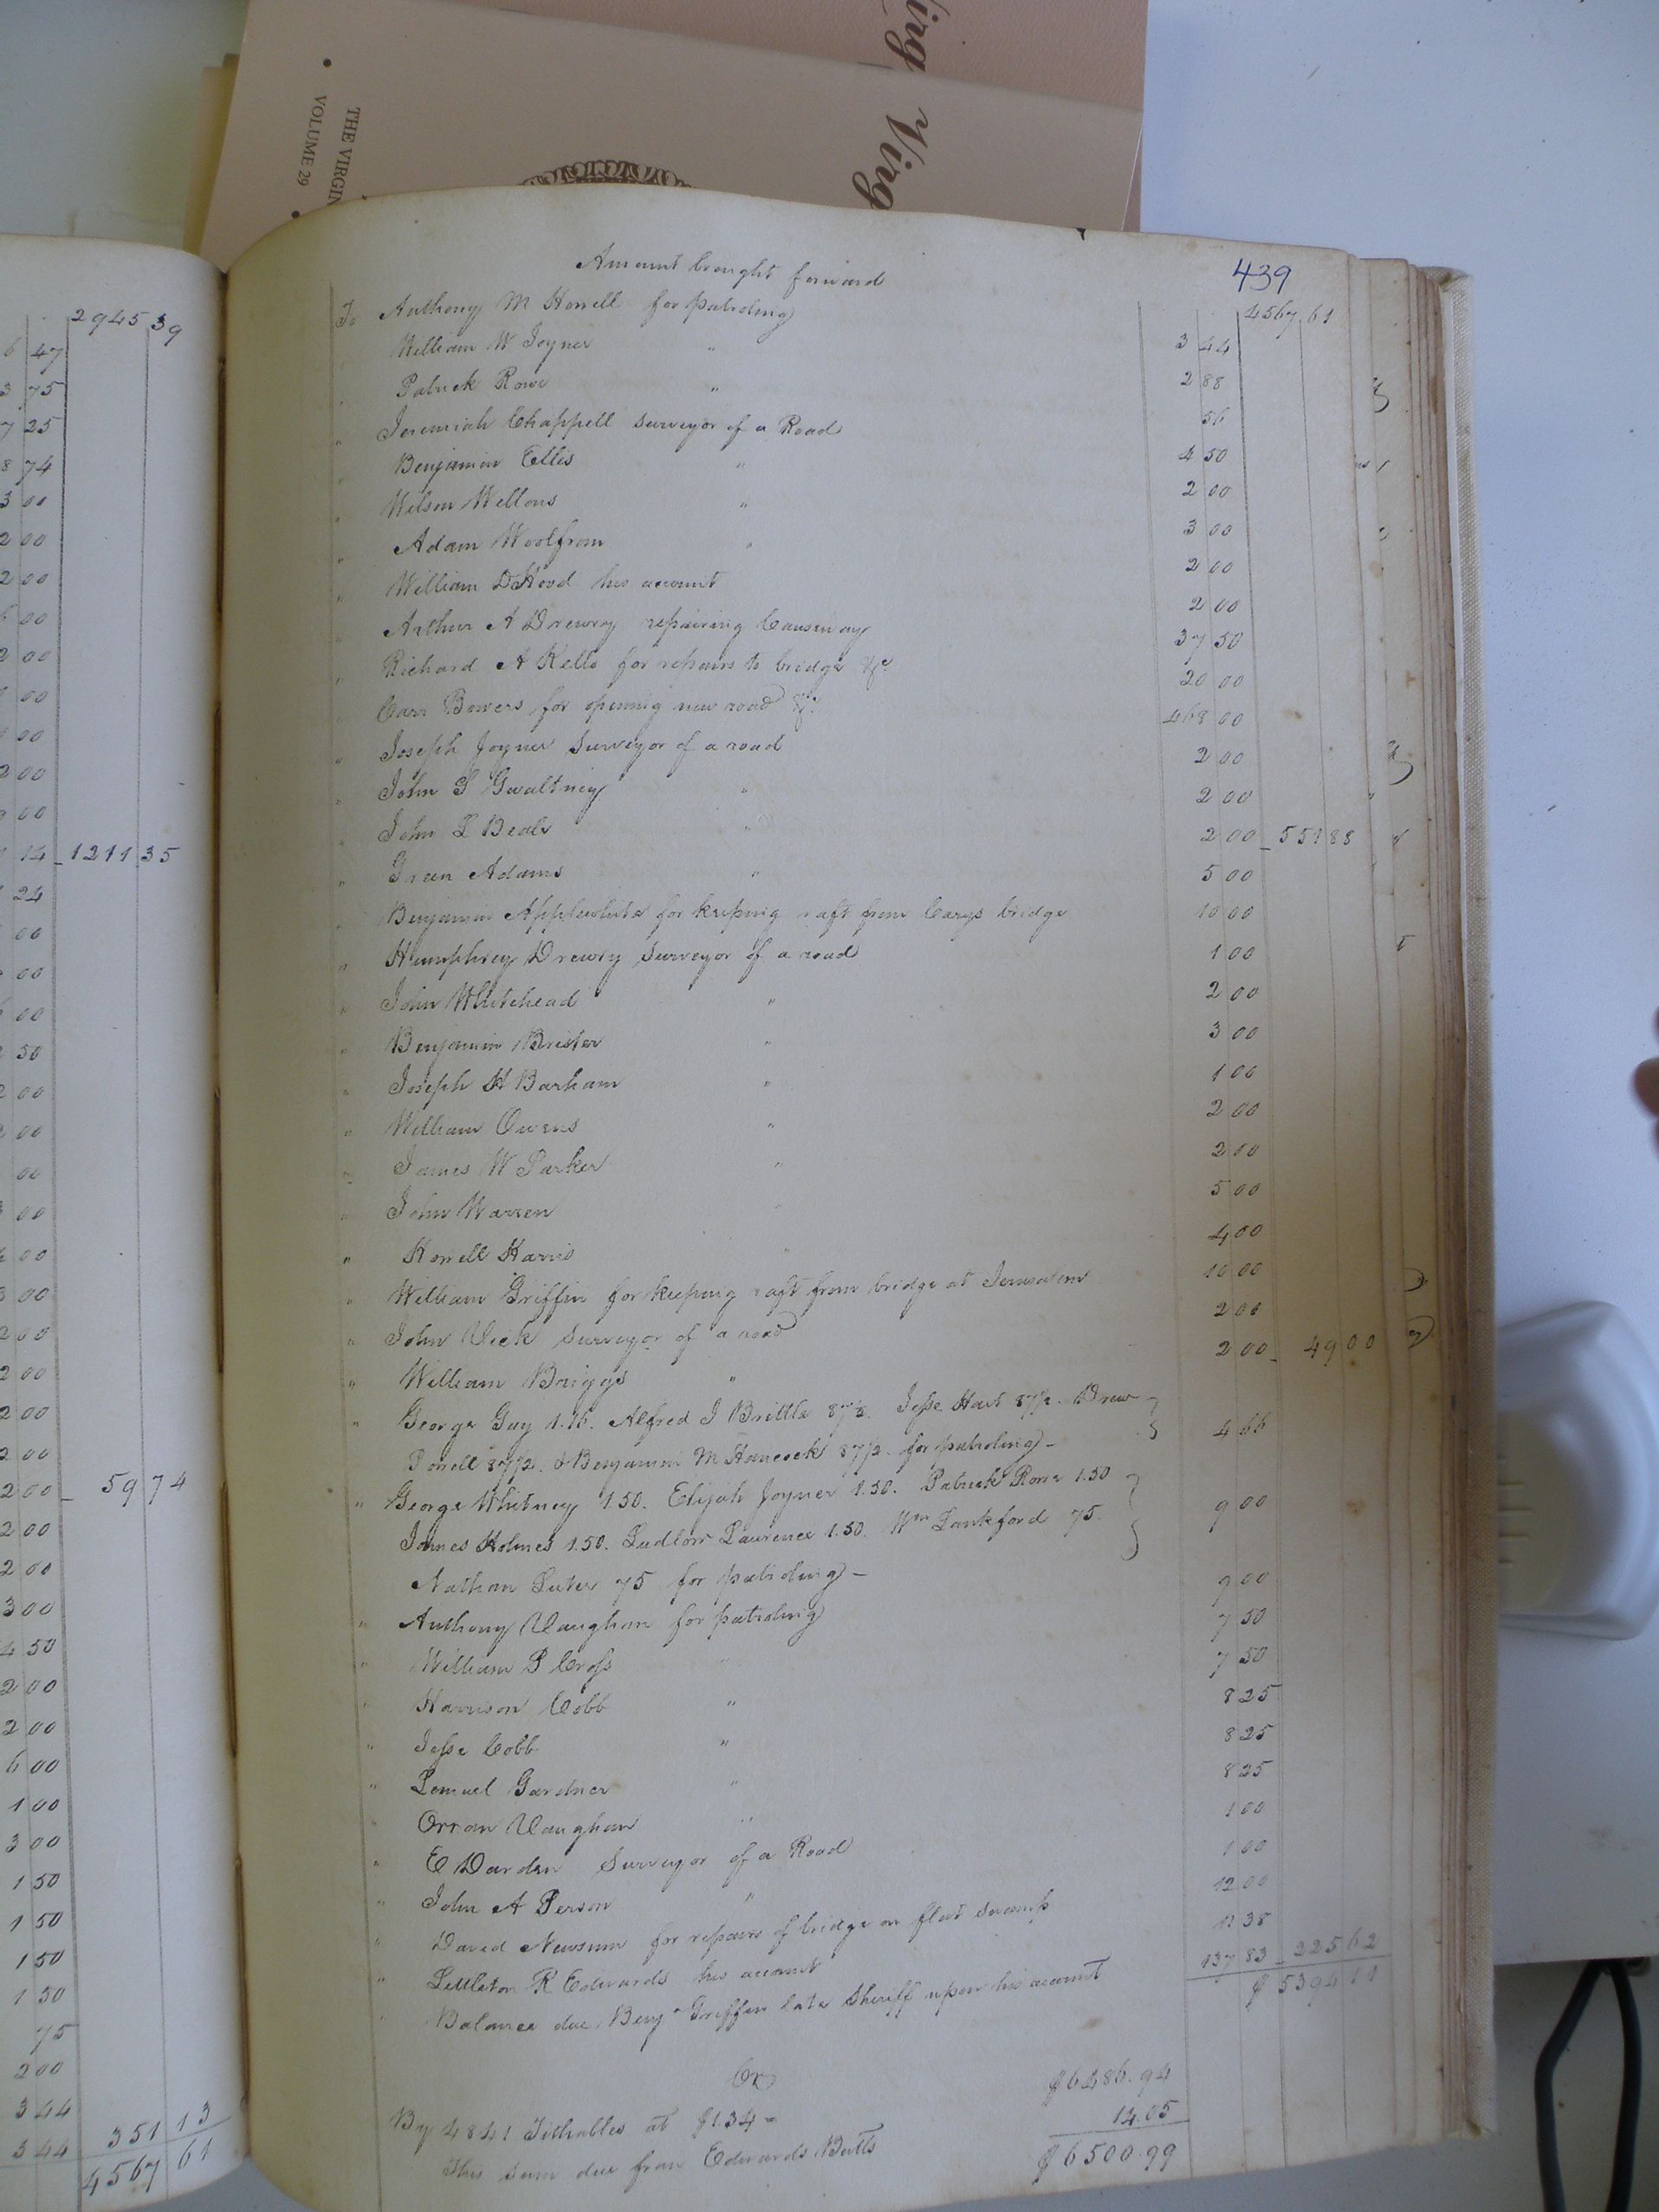 Virg
Virg
THE VIRGIN
VOLUME 29
2945 39
47
3 75
7 25
8 74
3 00
2 00
2 00
00
2 00
00
00
2 00
00
14 - 1211 35
24
00
00
00
50
2 00
00
00
00
00
3 00
2 00
2 00
2 00
2 00
2 00 - 59 74
2 00
2 00
3 00
4 50
2 00
2 00
6 00
1 00
3 00
1 50
1 50
1 50
1 50
75
2 00
3 44
3 44 351 13
4567 61
439
Amount brought forward 4567 61
To Anthony M Howell for patroling 3 44
William W Joyner " 2 88
Patrick Rowe " 56
" Jeremiah Chappell surveyor of a Road 4 50
Benjamin Ellis " 2 00
" Wilson Wellons " 3 00
" Adam Woolfrom " 2 00
" William D Hood his account 2 00
Arthur A Drewry repairing Causeway 37 50
" Richard A Kello for repairs to bridge &c 20 00
" Carr Bowers for opening new road &c 468 00
" Joseph Joyner Surveyor of a road 2 00
" John S Gwaltney " 2 00
" John L Beale " 2 00 - 551 88
" Green Adams " 5 00
" Benjamin Applewhite for keeping raft from Carys bridge 10 00
" Humphrey Drewry Surveyor of a road 1 00
" John Whitehead " 2 00
" Benjamin Brister " 3 00
" Joseph H Barham " 1 00
" William Owens " 2 00
" James W Parker " 2 00
" John Warren " 5 00
" Howell Harris " 4 00
" William Griffin for keeping raft from bridge at Jerusalem 10 00
" John Vick Surveyor of a road 2 00
" William Briggs " 2 00 - 49 00
" George Guy 1.16. Alfred J Brittle 87½. Jesse Hart 87½. Drew
Powell 87½. & Benjamin M Hancock 87½. for patroling - 4 66
" George Whitney 1.50. Elijah Joyner 1.50. Patrick Rowe 1.50
James Holmes 1.50. Ludlow Laurence 1.50. Wm Lankford 75. 9 00
Nathan Luter 75 for patroling -
" Anthony Vaughan for patroling 9 00
" William P Cross " 7 50
" Harrison Cobb " 7 50
" Jesse Cobb " 8 25
" Lemuel Gardner " 8 25
" Orran Vaughan " 8 25
" E Darden Surveyor of a Road 1 00
" John A Person " 1 00
" David Newsum for repairs of bridge on flat swamp 12 00
" Littleton R Edwards his account 11 38
" Balance due Benj Griffin late Sheriff upon his account 137 83 - 225 62
$ 5394 11
Cr
By 4841 Tithables at $1.34 - $6486.94
This sum due from Edwards Butts 14.05
$6500.99